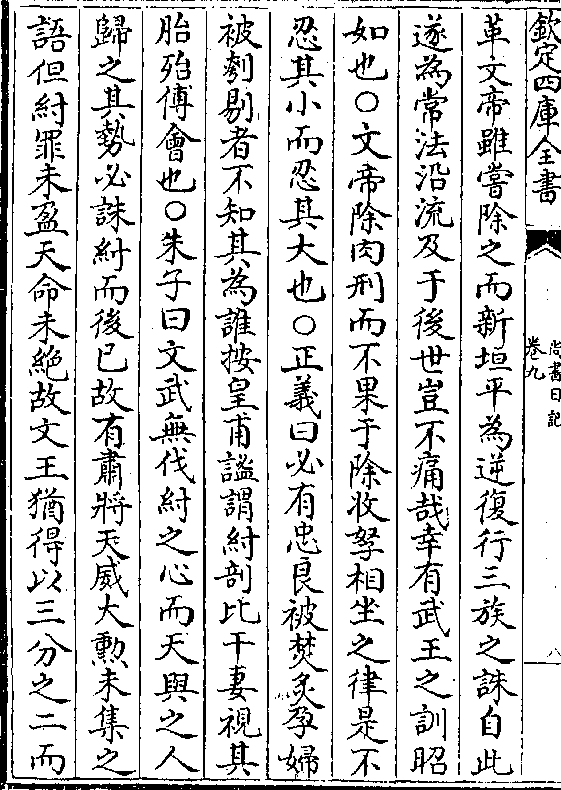 欽定四庫全書
尚書日記
卷九
八
革文帝雖嘗除之而新垣平為逆復行三族之誅自此
遂為常法沿流及于後世豈不痛哉幸有武王之訓昭
如也○文帝除肉刑而不果于除收孥相坐之律是不
忍其小而忍其大也○正義曰必有忠良被焚炙孕婦
被刳剔者不知其為誰按皇甫謐謂紂剖比干妻視其
胎殆傅會也○朱子曰文武無伐紂之心而天與之人
歸之其勢必誅紂而後已故有肅將天威大勲未集之
語但紂罪未盈天命未絶故文王猶得以三分之二而